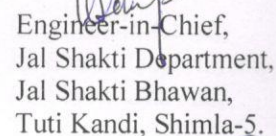 Engineer-in-Chief,
Jal Shakti Department,
Jal Shakti Bhawan,
Tuti Kandi, Shimla-5.